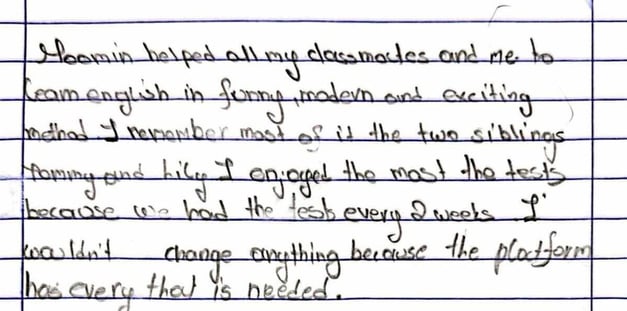 Moomin helped all my classmates and me to
learn english in funny, modern and exciting
method I remember most of it the two siblings
Tommy and Lily I enjoyed the most the tests
because we had the tests every 2 weeks I
wouldn't change anything because the platform
has every that is needed.